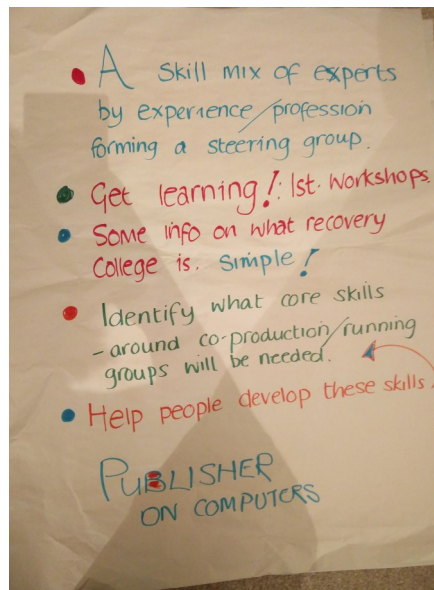 • A skill mix of experts
by experience/profession
forming a steering group.
• Get learning!: 1st. Workshops
• Some info on what recovery
College is. Simple!
• Identify what core skills
- around co-production/running
groups will be needed.
• Help people develop these skills
PUBLISHER
ON COMPUTERS